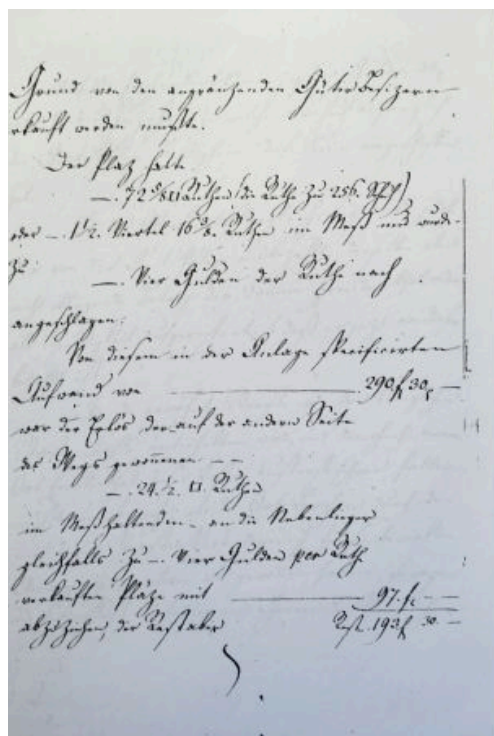 Grund von den angränzenden Güter Besizern
erkauft werden mußte.
Der Plaz hatte
—. 72 5/8 □ Ruthen (die Ruthe zu 256. Sch)
oder —. 1 1/2. Viertel 16 3/8. Ruthen im Meß und wurde
zu
—. Vier Gulden der Ruthe nach
angeschlagen.
Von diesem in der Anlage specificirten
Aufwand von — 290 f 30 —
war der Erlös der auf der andern Seite
des Wegs gewonnenen —
—. 24 1/2. □. Ruthen
im Meß haltenden — an die Nebenlieger
gleichfalls zu —. Vier Gulden per Ruth
verkauften Pläze mit — 97. f. —
abzuziehen, der Rest aber Rest. 193 f 30. —